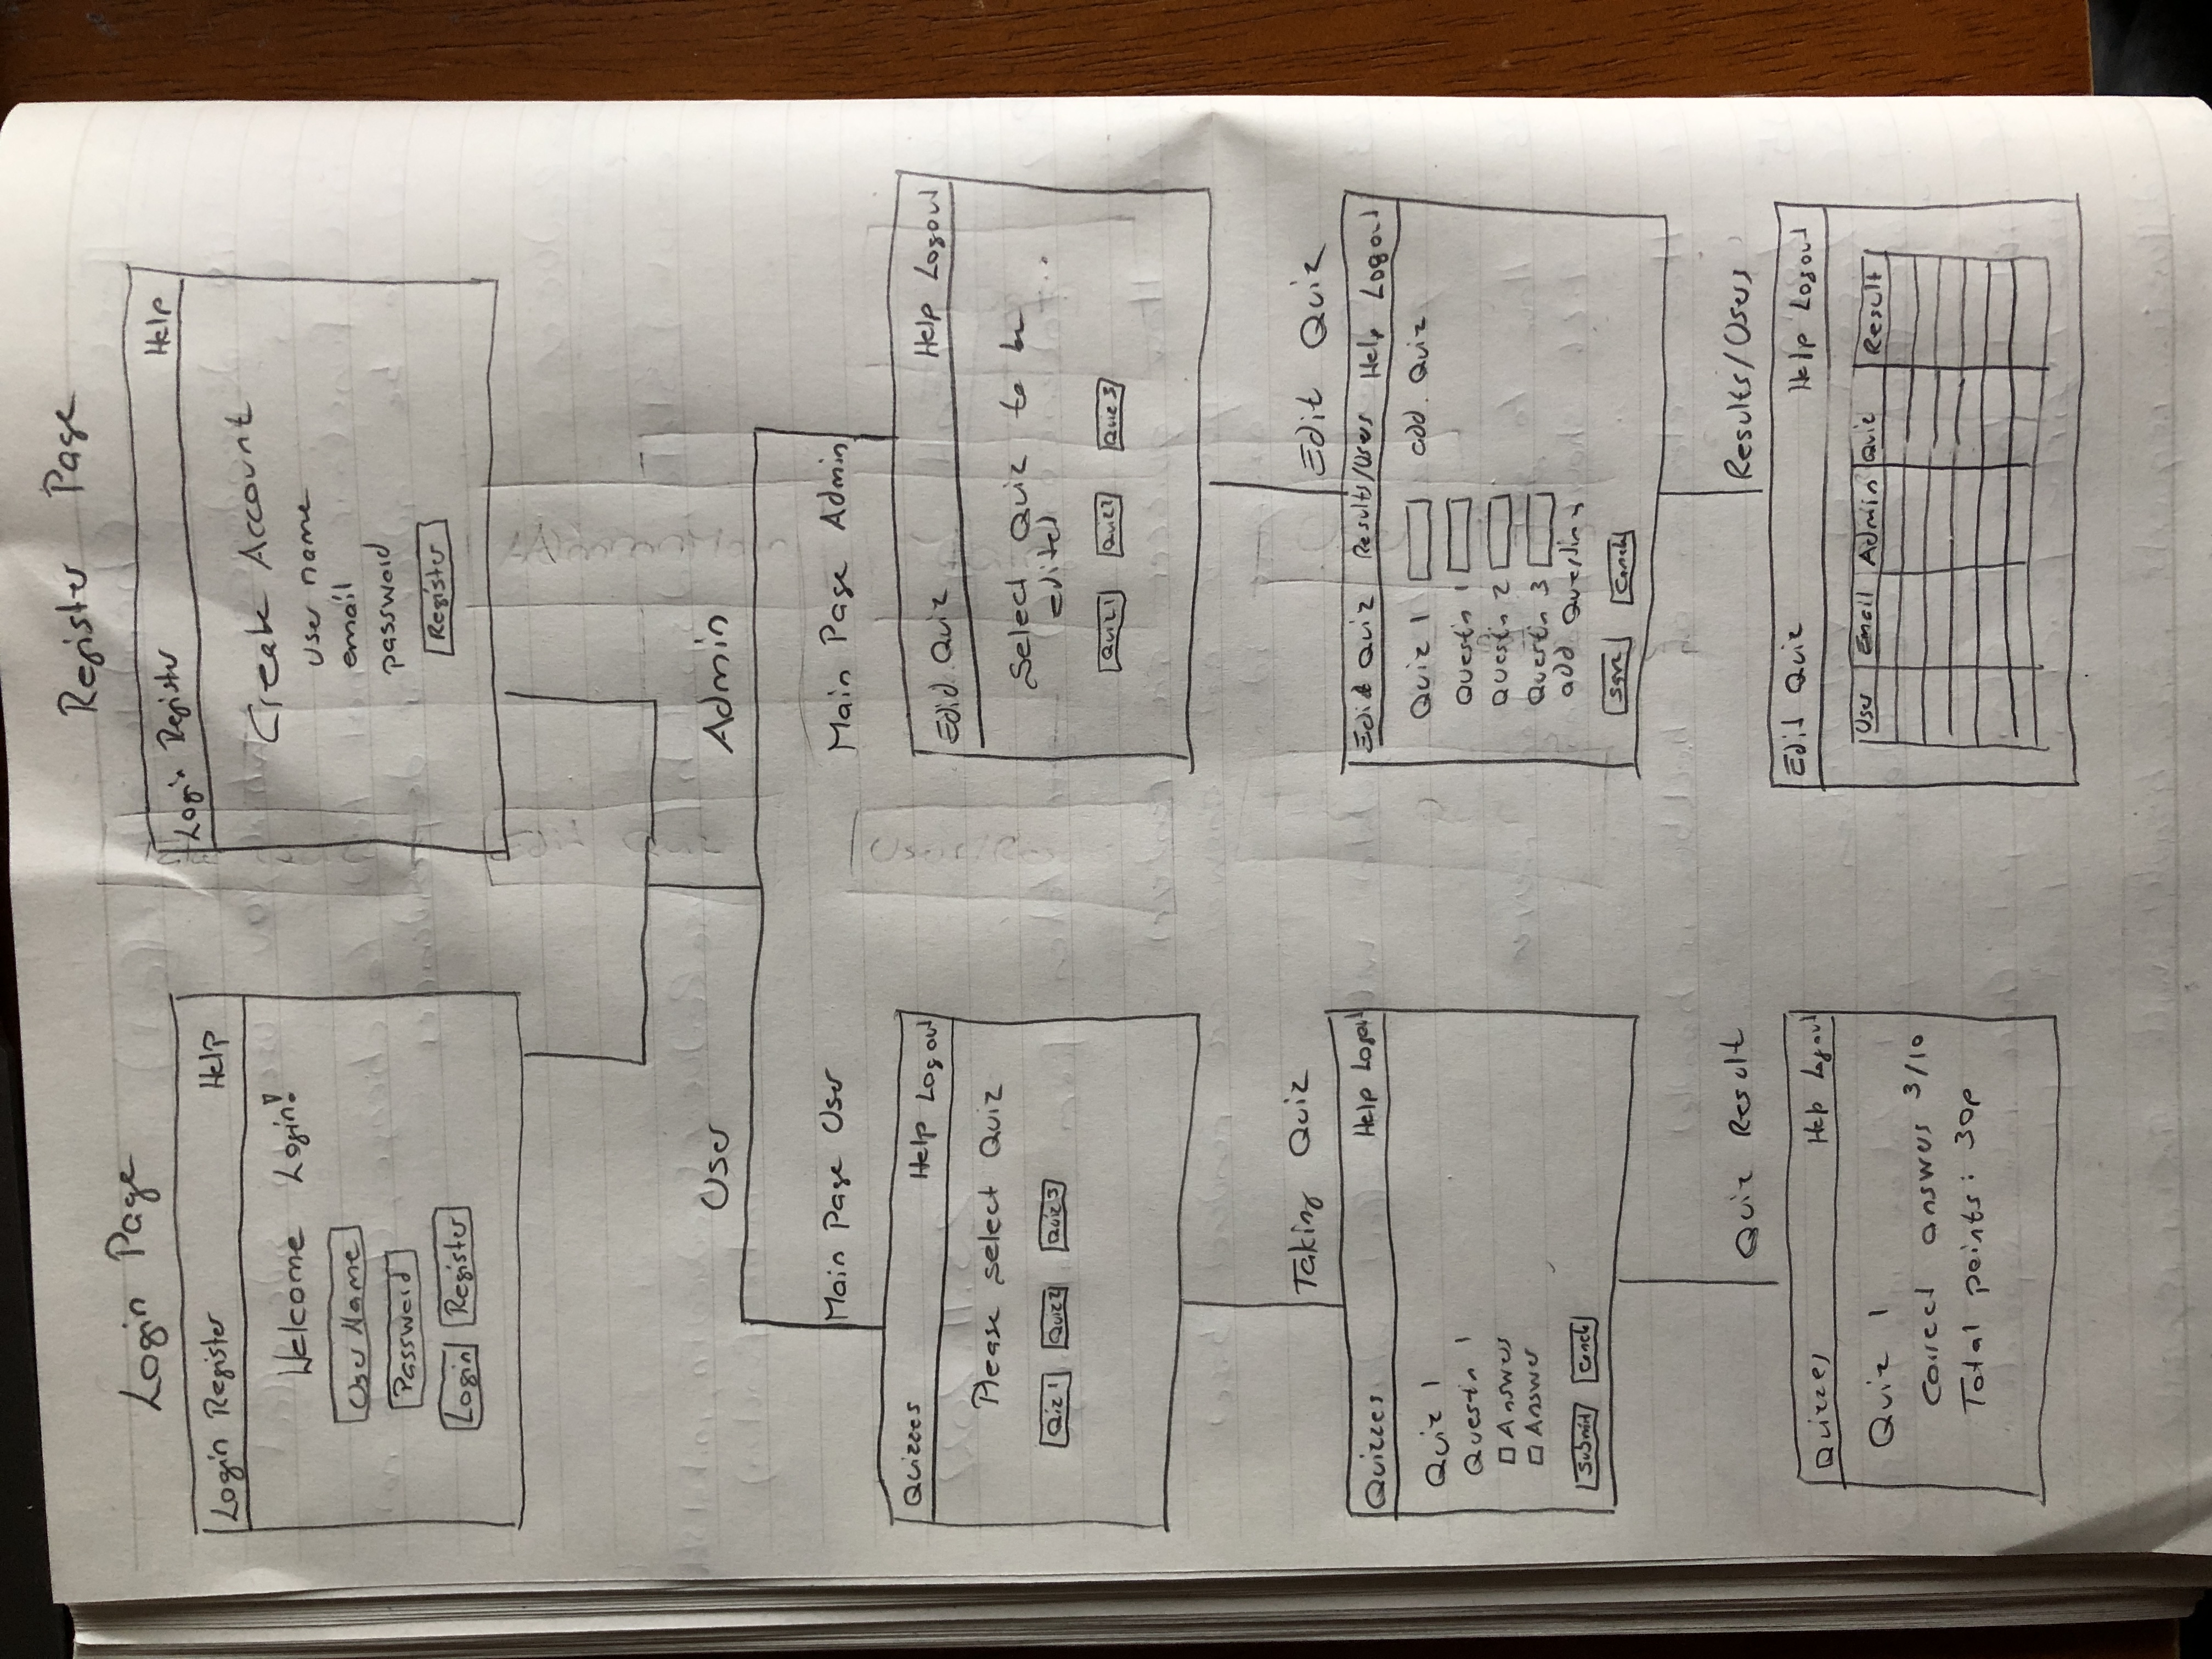 Login Page
Login Register Help
Welcome Login!
User Name
Password
Login Register
Register Page
Login Register Help
Create Account
user name
email
password
Register
User Admin
Main Page User
Quizzes Help Logout
Please select Quiz
Qiz 1 Quiz 2 Quiz 3
Main Page Admin
Edid Quiz Help Logout
Select Quiz to be
edited
Quiz 1 Quiz 2 Quiz 3
Taking Quiz
Quizzes Help Logout
Quiz 1
Question 1
Answer
Answer
Submit Cancle
Edit Quiz
Edit Quiz Results/Users Help Logout
Quiz 1 add Quiz
Question 1
Question 2
Question 3
add Question
Save Cancle
Quiz Result
Quizzes Help Logout
Quiz 1
Correct answers 3/10
Total points: 30p
Results/Users
Edit Quiz Help Logout
User Email Admin Quiz Result